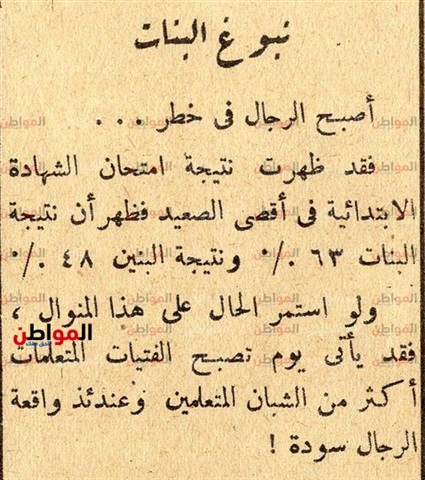 نبوغ البنات
أصبح الرجال فى خطر . . .
فقد ظهرت نتيجة امتحان الشهادة
الابتدائية فى أقصى الصعيد فظهر أن نتيجة
البنات ٦٣ ٪ ونتيجة البنين ٤٨ ٪
ولو استمر الحال على هذا المنوال ،
فقد يأتى يوم تصبح الفتيات المتعلمات
أكثر من الشبان المتعلمين وعندئذ واقعة
الرجال سودة !
المواطن